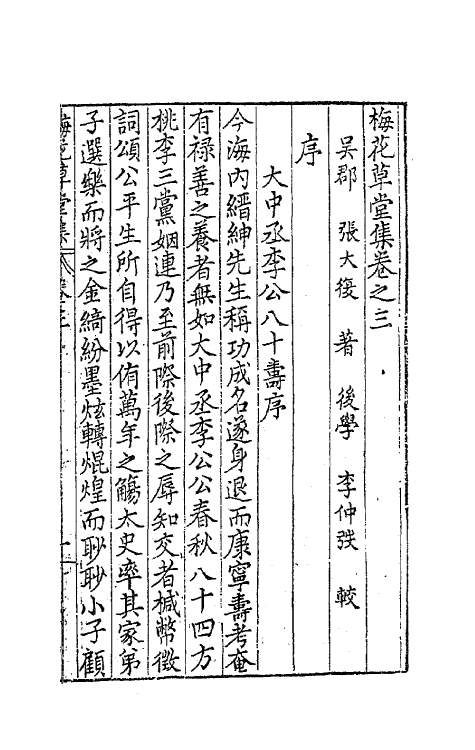 梅花草堂集卷之三
吳郡 張大復 著 後學 李仲 較
序
大中丞李公八十壽序
今海內縉紳先生稱功成名遂身退而康寧壽考奄
有祿善之養者無如大中丞李公公春秋八十四方
桃李三黨姻連乃至前際後際之辱知交者椷幣徵
詞頌公平生所自得以侑萬年之觴太史率其家弟
子選樂而將之金綺紛墨炫轉焜煌而眇眇小子顧
梅花草堂集 卷三 一